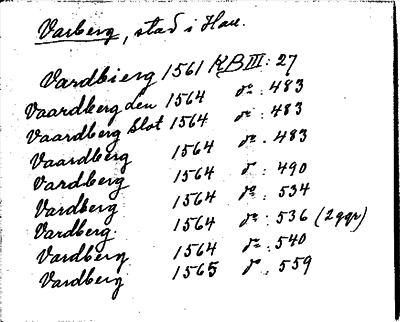 Varberg, stad i Hall.
Vardbierg 1561 KB III: 27
Vaardberg den 1564 do: 483
Vaardberg Slot 1564 do: 483
Vaardberg 1564 do: 483
Vardberg 1564 do: 490
Vardberg 1564 do: 534
Vardberg. 1564 do: 536 (2 ggr)
Vardberg 1564 do: 540
Vardberg 1565 do: 559